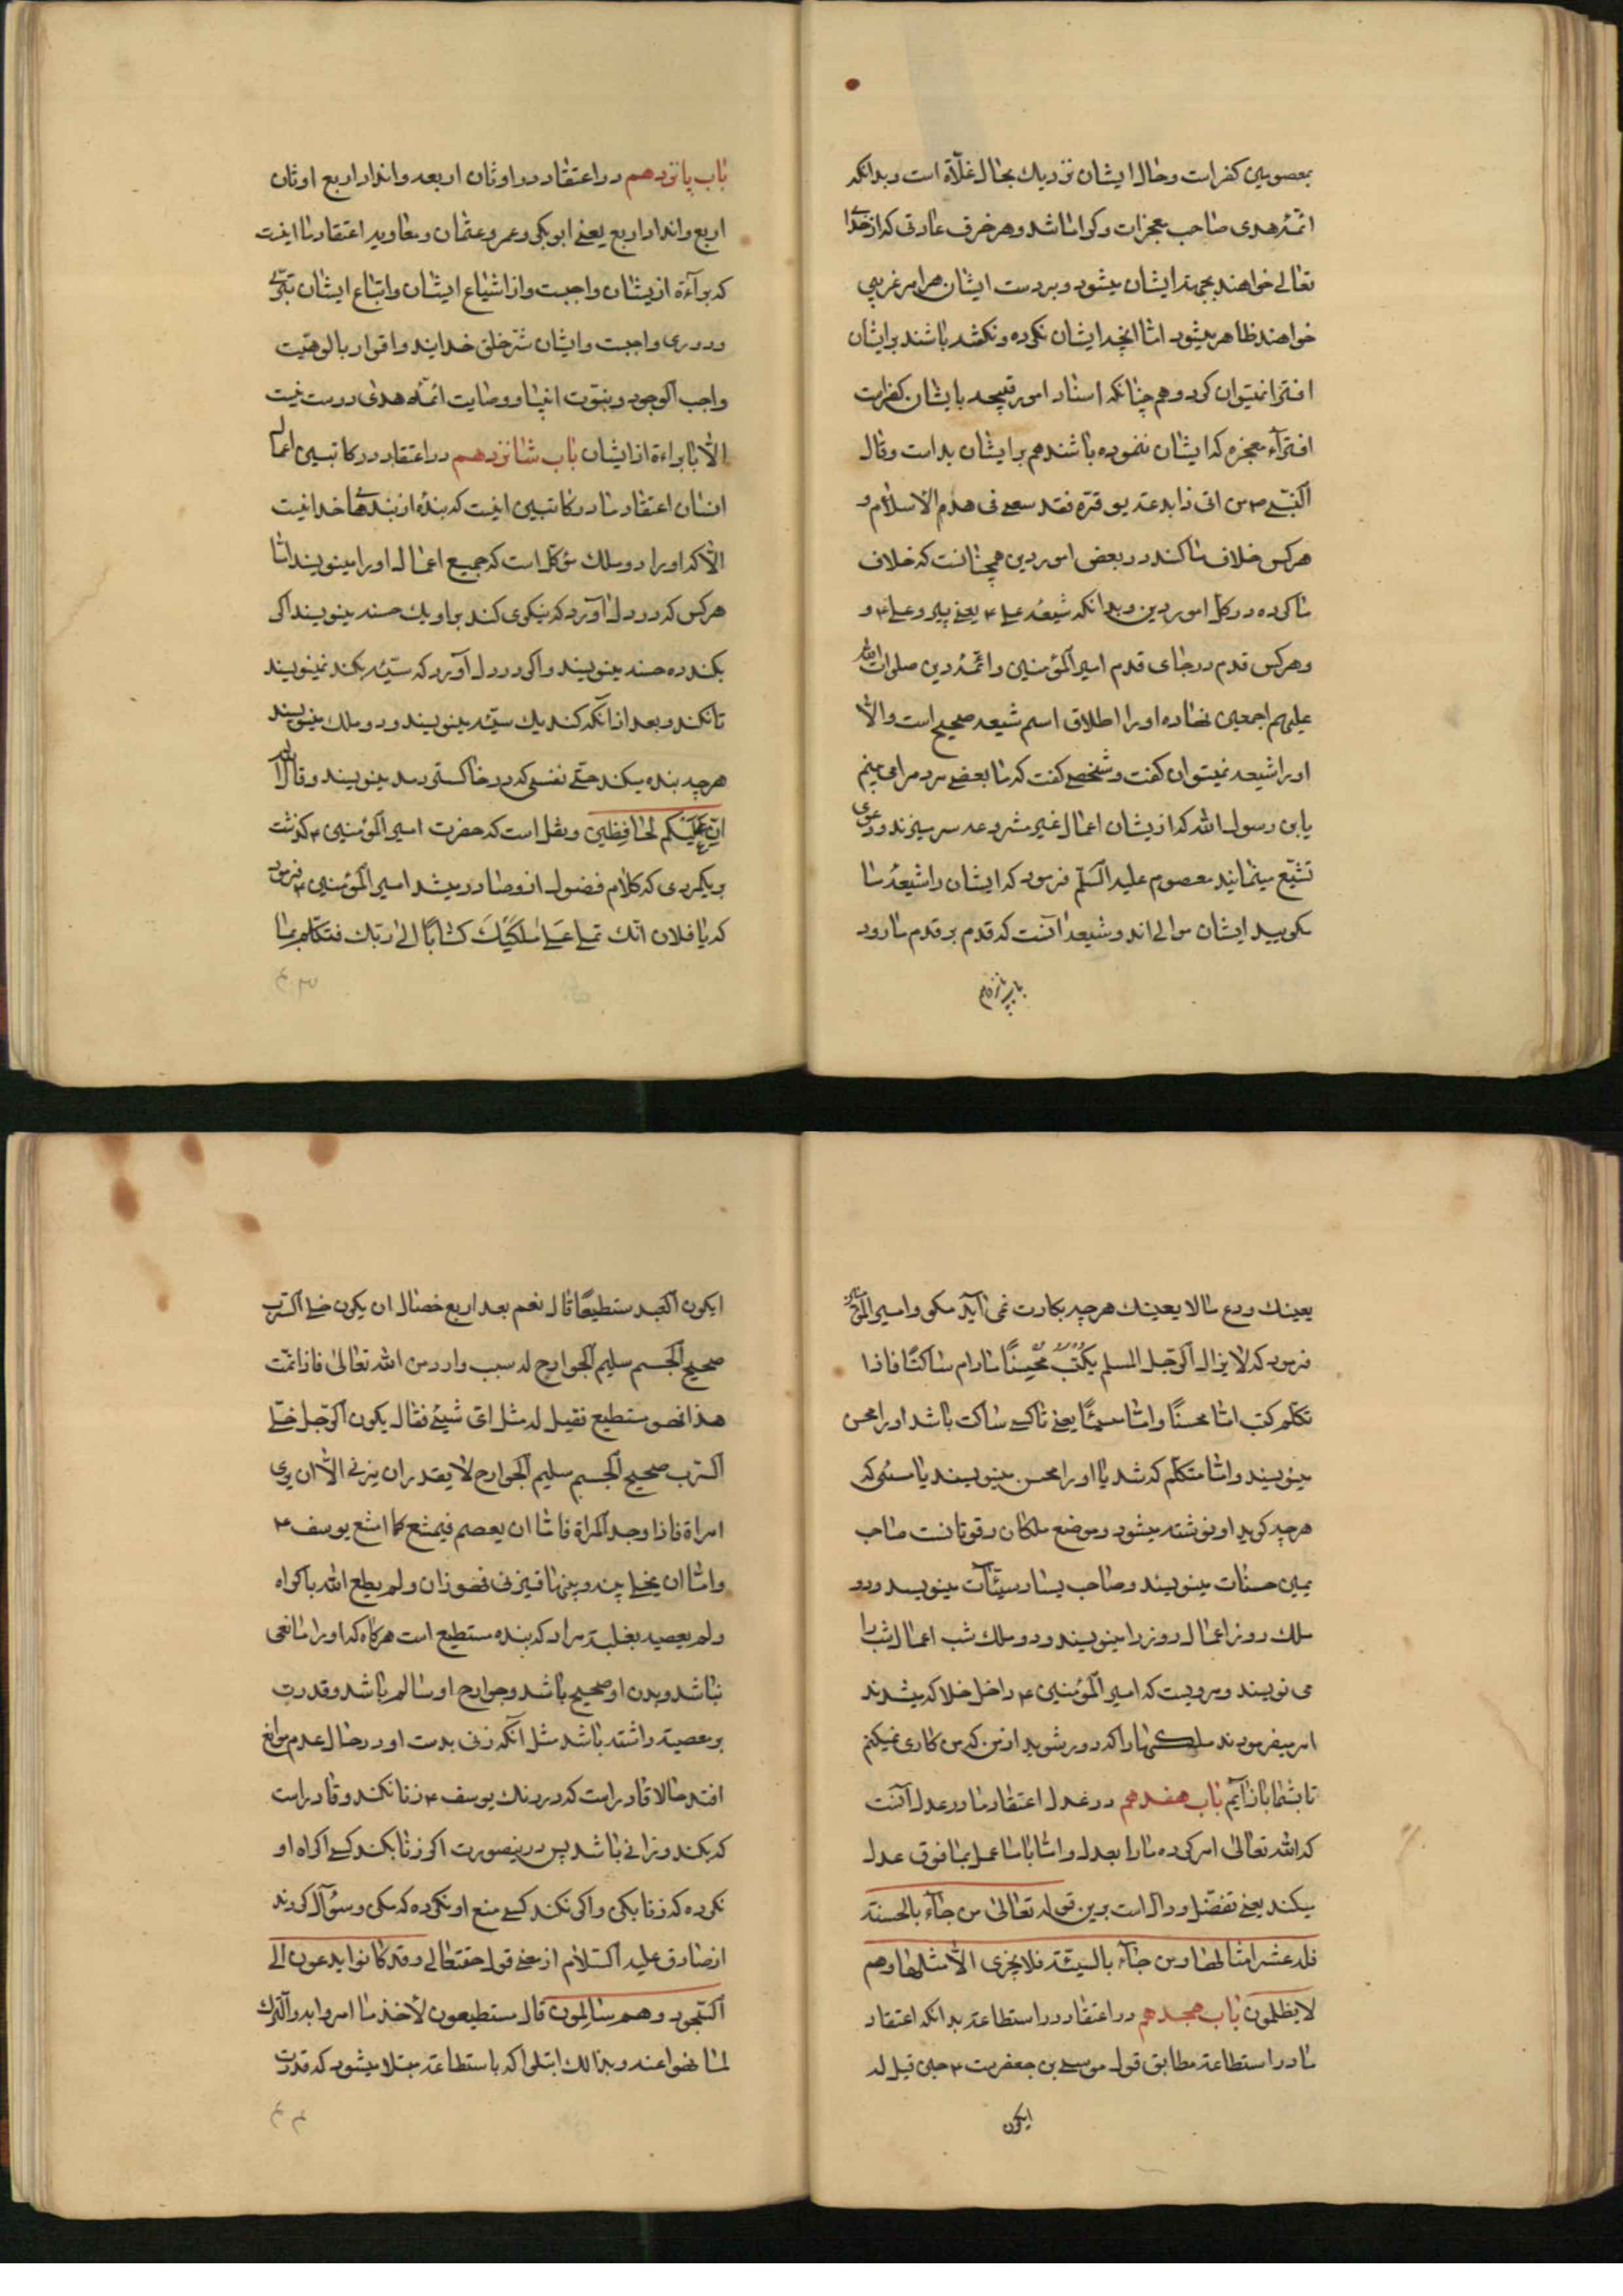 بمعصومین کفرات وحال ایشان نزدیك بحال غلاة است وبدانکه
ائمه هدی صاحب معجزات وکراماتند وهر خرق عادتی که از خدا
تعالی خواهند بجهة ایشان میشود وبردست ایشان هر امر غریبی
خواهند ظاهر میشود اما انچه ایشان نکرده ونکفته باشند برایشان
افترا نمیتوان کرد وهم چنانکه اسناد امور قبیحه بایشان کفراست
افتراء معجزه که ایشان ننموده باشند هم برایشان بداست وقال
النبی ص من اتی ذا بدعة یوقره فقد سعی فی هدم الاسلام و
هرکس خلاف ما کند در بعض امور دین همچنانست که خلاف
ما کرده در کل امور دین وبدانکه شیعه علی ع یعنی پیرو علی ع و
وهرکس قدم در جای قدم امیر المؤمنین وائمه دین صلوات الله
علیهم اجمعین نهاده اورا اطلاق اسم شیعه صحیح است والا
اورا شیعه نمیتوان کفت وشخصی کفت که ما بعضی مردم را می بینم
یابن رسول الله که ازیشان اعمال غیر مشروعه سر میزند ودعوی
تشیع مینمایند معصوم علیه السلم فرمود که ایشان را شیعه ما
مکویید ایشان موالی اند وشیعه ما آنست که قدم بر قدم ما رود
باب پانزدهم
باب پانزدهم در اعتقاد در اوثان اربعه وانداد اربع اوثان
اربع وانداد اربع یعنی ابوبکر وعمر وعثمان ومعاویه اعتقاد ما اینست
که برآءة ازیشان واجبست واز اشیاع ایشان واتباع ایشان تبری
ودوری واجبست وایشان شر خلق خدایند واقرار بالوهیت
واجب الوجود وبنبوت انبیا ووصایت ائمه هدی درست نیست
الا بابراءة از ایشان باب شانزدهم در اعتقاد در کاتبین اعمال
انسان اعتقاد ما در کاتبین اینست که بنده از بندهای خدا نیست
الا که اورا دو ملك موکل است که جمیع اعمال اورا مینویسند اما
هرکس که در دل آورد که نیکوی کند براو یك حسنه مینویسند اکر
بکند ده حسنه مینویسند واکر در دل آورد که سیئه بکند نمینویسند
تا نکند وبعد از آنکه کند یك سیئه مینویسند ودو ملك مینویسند
هرچه بنده میکند حتی نفسی که در خاکستر دمد مینویسند وقال الله
ان علیکم لحافظین ونقل است که حضرت امیر المؤمنین ع کذشت
بریکمردی که کلام فضول ازو صادر میشد امیر المؤمنین ع فرمود
که یا فلان انك تملی علی ملکیك کتابا الی ربك فتکلم بما
۴۳
یعینك ودع ما لا یعینك هرچه بکارت نمی آید مکو وامیر المؤمنین
فرمود که لا یزال الرجل المسلم یکتب محسنا مادام ساکتا فاذا
تکلم کتب اما محسنا واما مسیئا یعنی تا کسی ساکت باشد اورا محسن
مینویسند واما متکلم که شد یا اورا محسن مینویسند یا مسیئ که
هرچه کوید او نوشته میشود وموضع ملکان ترقوتانست صاحب
یمین حسنات مینویسند وصاحب یسار سیئات مینویسد ودو
ملك روز اعمال روز را مینویسند ودو ملك شب اعمال شب را
می نویسند ومرویست که امیر المؤمنین ع داخل خلا که میشدند
امر میفرمودند ملکها را که دور شوید از من که من کاری نمیکنم
تا بشما باز آیم باب هفدهم در عدل اعتقاد ما در عدل آنست
که الله تعالی امر کرده ما را بعدل واما با ما عمل بما فوق عدل
میکند یعنی تفضل ودال است برین قوله تعالی من جآء بالحسنة
فله عشر امثالها ومن جآء بالسیئة فلا یجزی الا مثلها وهم
لا یظلمون باب هجدهم در اعتقاد در استطاعة بدانکه اعتقاد
ما در استطاعة مطابق قول موسی بن جعفرست ع حین قیل له
ایکون
ایکون العبد مستطیعا قال نعم بعد اربع خصال ان یکون خلی السرب
صحیح الجسم سلیم الجوارح له سبب وارد من الله تعالی فاذا تمت
هذا فهو مستطیع فقیل له مثل ای شیئ فقال یکون الرجل خلی
السرب صحیح الجسم سلیم الجوارح لا یقدر ان یزنی الا ان یری
امراة فاذا وجد المراة فاما ان یعصم فیمتنع کما امتنع یوسف ع
واما ان یخلی بینه وبینها فیزنی فهو زان ولم یطع الله باکراه
ولم یعصه بغلبة مراد که بنده مستطیع است هرکاه که اورا مانعی
نباشد وبدن او صحیح باشد وجوارح او سالم باشد وقدرت
برمعصیة داشته باشد مثل آنکه زنی بدست او در حال عدم موانع
افتد حالا قادراست که در رنك یوسف ع زنا نکند وقادراست
که بکند وزانی باشد پس درینصورت اکر زنا بکند کسی اکراه او
نکرده که زنا بکن واکر نکند کسی منع او نکرده که مکن وسؤآل کردند
از صادق علیه السلام از معنی قول حقتعالی وقد کانوا یدعون الی
السجود وهم سالمون قال مستطیعون لاخذ ما امروا به والترك
لما نهوا عنه وبذالك ابتلوا که باستطاعة مبتلا میشود که قدرت
۴۴